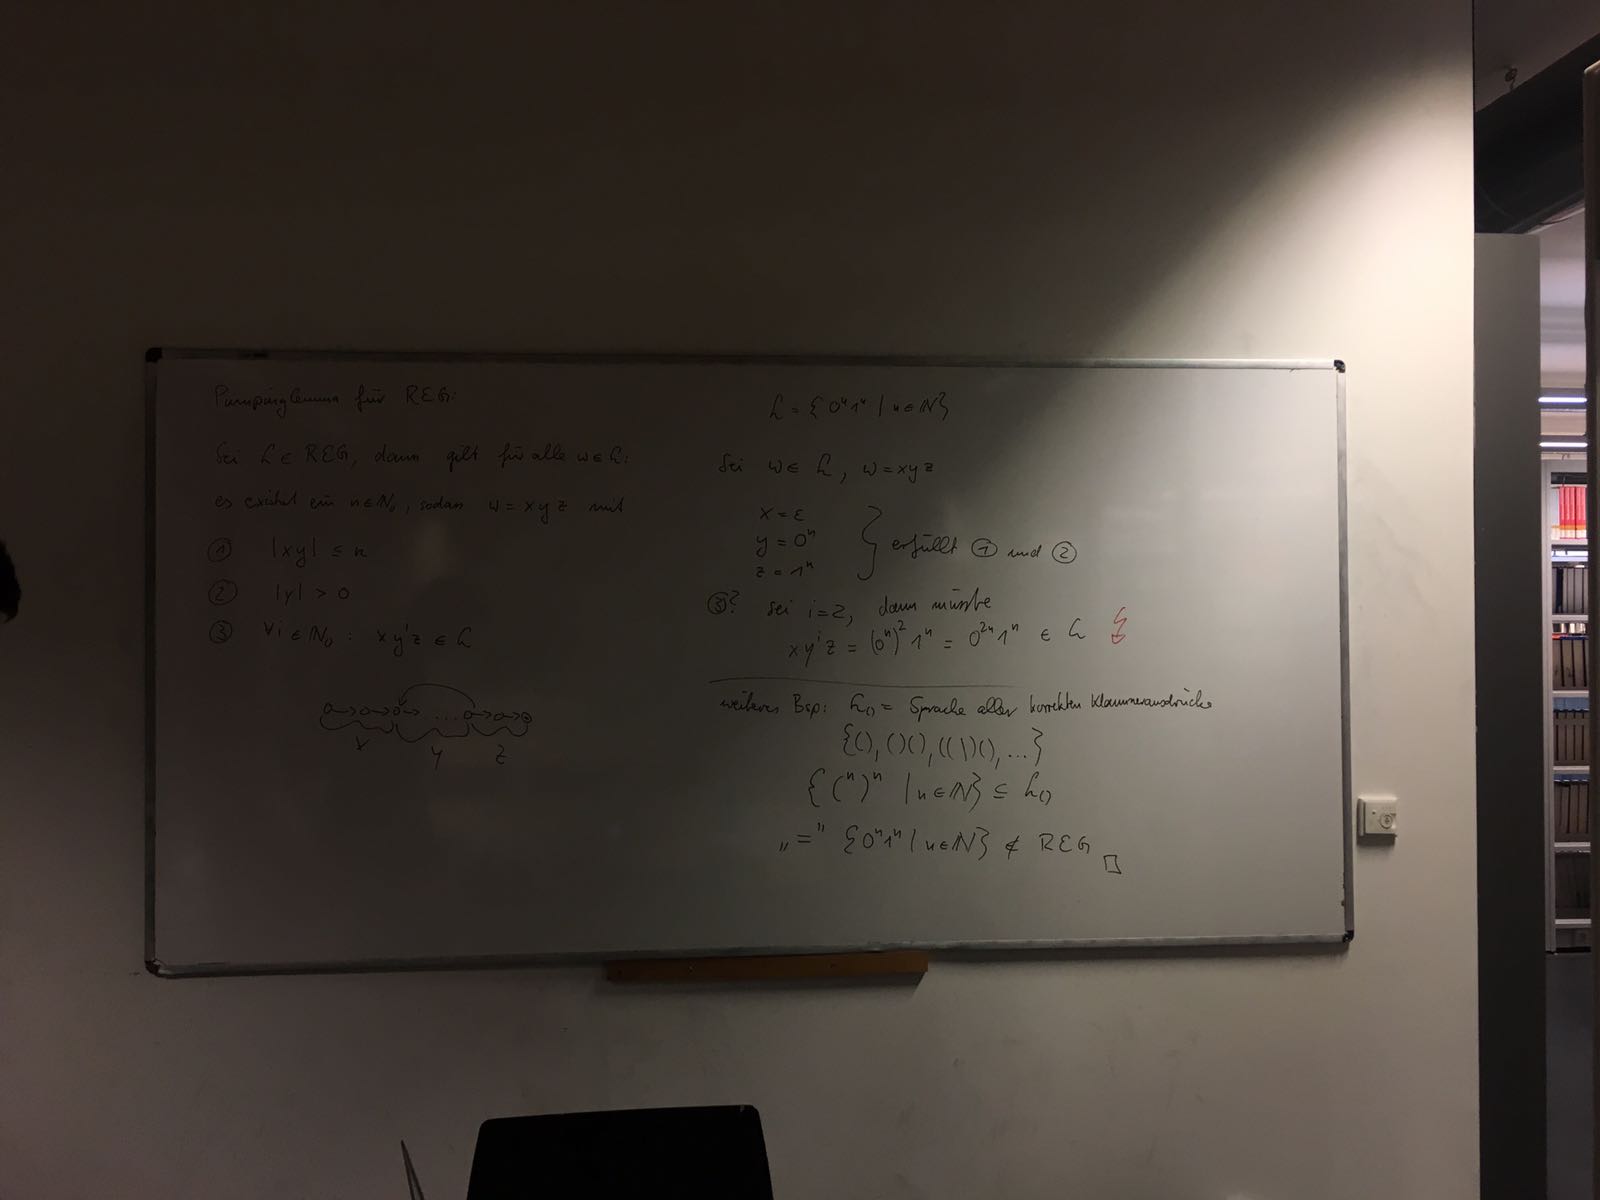 Pumpinglemma für REG:
Sei L ∈ REG, dann gilt für alle w ∈ L:
es existiert ein n ∈ N₀, sodass w = xyz mit
① |xy| ≤ n
② |y| > 0
③ ∀i ∈ N₀ : xyⁱz ∈ L
x y z
L = {0ⁿ1ⁿ | n ∈ N}
Sei w ∈ L, w = xyz
x = ε
y = 0ⁿ
z = 1ⁿ
erfüllt ① und ②
③? Sei i = 2, dann müsste
xyⁱz = (0ⁿ)² 1ⁿ = 0²ⁿ1ⁿ ∈ L ↯
weiteres Bsp: L₍₎ = Sprache aller korrekten Klammerausdrücke
{(), ()(), (())(), ...}
{(ⁿ )ⁿ | n ∈ N} ⊆ L₍₎
„=" {0ⁿ1ⁿ | n ∈ N} ∉ REG □